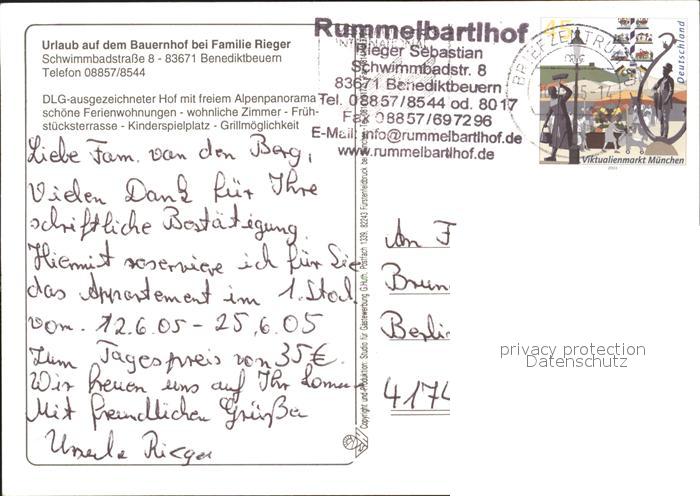 Urlaub auf dem Bauernhof bei Familie Rieger
Schwimmbadstraße 8 - 83671 Benediktbeuern
Telefon 08857/8544
DLG-ausgezeichneter Hof mit freiem Alpenpanorama -
schöne Ferienwohnungen - wohnliche Zimmer - Früh-
stücksterrasse - Kinderspielplatz - Grillmöglichkeit
Rummelbartlhof
Rieger Sebastian
Schwimmbadstr. 8
83671 Benediktbeuern
Tel. 08857/8544 od. 8017
Fax 08857/697296
E-Mail: info@rummelbartlhof.de
www.rummelbartlhof.de
BRIEFZENTRUM
45
Deutschland
Viktualienmarkt München
Liebe Fam. van den Berg,
Vielen Dank für Ihre
schriftliche Bestätigung
Hiermit reserviere ich für Sie
das Appartement im 1. Stock
vom. 12.6.05 - 25.6.05
Zum Tagespreis von 35 €.
Wir freuen uns auf Ihr Komm
Mit freundlichen Grüßen
Ursula Rieger
An F
Brun
Berli
4174
privacy protection
Datenschutz